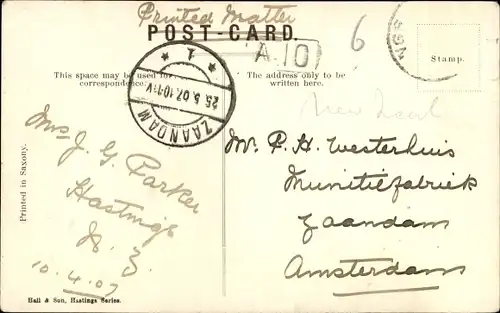 Printed Matter
POST-CARD.
A.10
6
This space may be used for
correspondence.
The address only to be
written here.
Stamp.
* 1 *
25.5.07.10-11V
ZAANDAM
Mrs J. G. Parker
Hastings
N. Z.
10.4.07
Mr. P. H. Westerhuis
Munitiefabriek
Zaandam
Amsterdam
Printed in Saxony.
Hall & Son, Hastings Series.